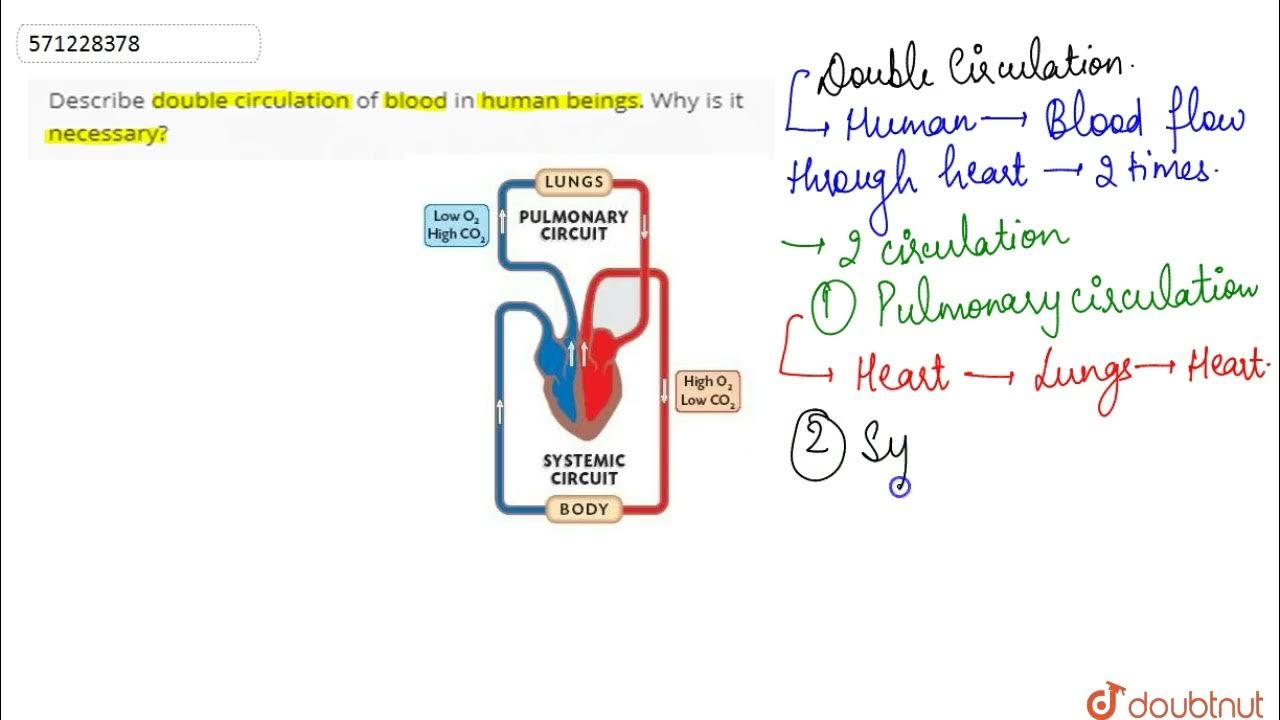 571228378
Describe double circulation of blood in human beings. Why is it
necessary?
LUNGS
Low O₂
High CO₂
PULMONARY
CIRCUIT
High O₂
Low CO₂
SYSTEMIC
CIRCUIT
BODY
Double Circulation.
→ Human → Blood flow
through heart → 2 times.
→ 2 circulation
① Pulmonary circulation
→ Heart → Lungs → Heart.
② Sy
doubtnut